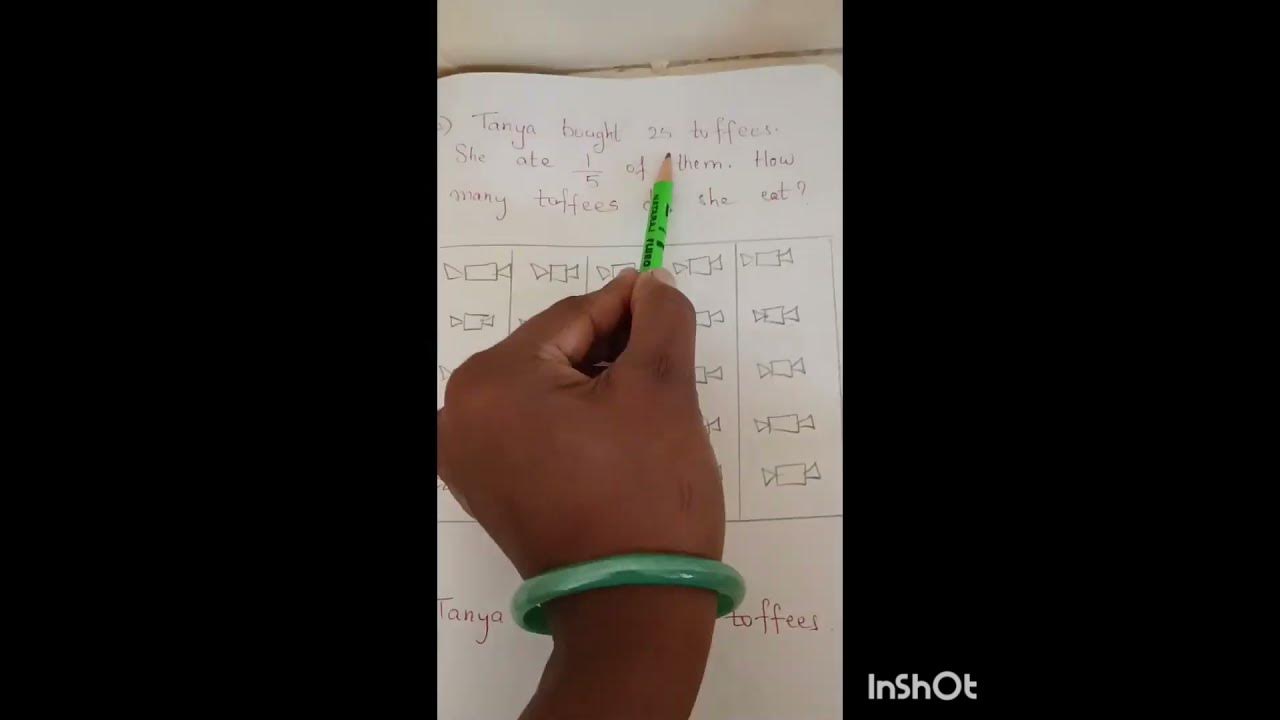 ) Tanya bought 25 toffees.
She ate 1/5 of them. How
many toffees she eat?
NATARAJ
Tanya toffees.
InShOt